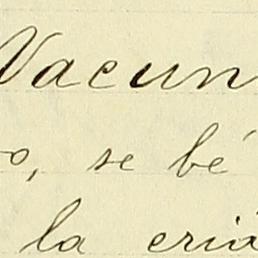 Vacun
o, se bé
la criã